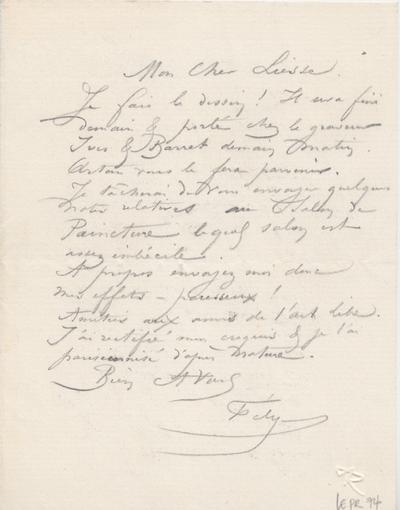 Mon Cher Liesse.
Je fais le dessin ! Il sera fini
demain & porté chez le graveur
Yves & Barret demain matin.
Artan vous le fera parvenir.
Je tâcherai de vous envoyer quelques
notes relatives au Salon de
Paincture lequel salon est
assez imbécile.
A propos envoyez moi donc
mes effets – paresseux !
Amitiés aux amis de l'art libre.
J'ai rectifié mon croquis & je l'ai
parisiennisé d'après nature.
Bien A Vous
Fély
LEPR 94